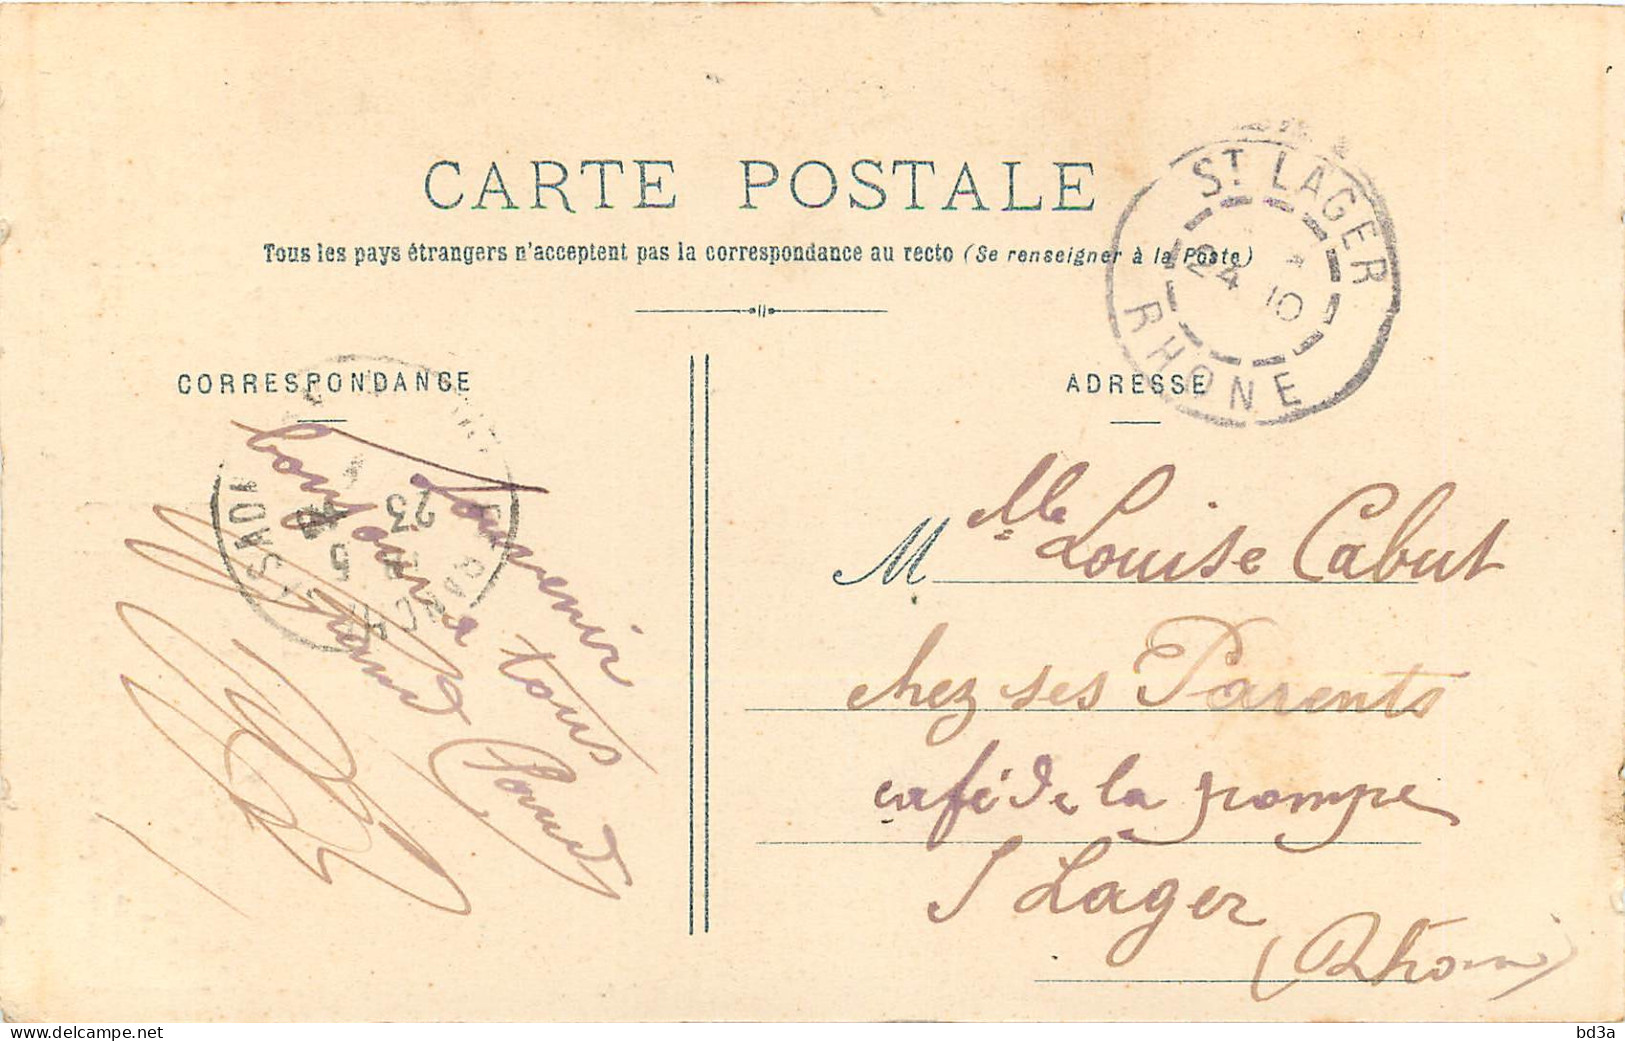 CARTE POSTALE
Tous les pays étrangers n'acceptent pas la correspondance au recto (Se renseigner à la Poste)
ST LAGER
24
10
RHONE
CORRESPONDANCE
ADRESSE
Souvenir
bonjour a tous
23
5
Mlle Louise Cabut
chez ses Parents
café de la pompe
S Lager
(Rhone)
www.delcampe.net
bd3a